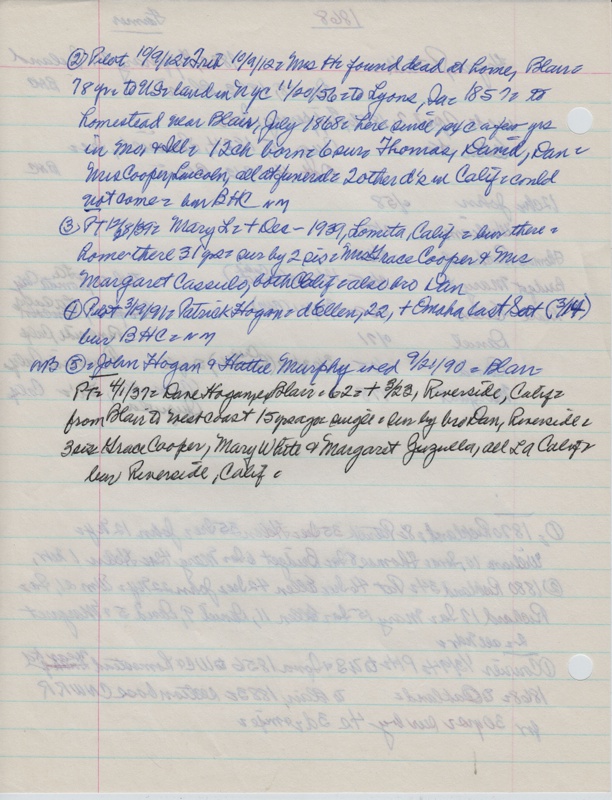 ② Pilot 10/9/12 = Trib 10/9/12 = Mrs PH found dead at home, Blair =
78 yrs to US = land in NYC 11/20/56 = to Lyons, Ia = 1857 = to
homestead near Blair, July 1868 = here since exc a few yrs
in Mo, & Ill = 12 ch born = 6 sur = Thomas, David, Dan =
Mrs Cooper, Lincoln, all at funeral = 2 other d's in Calif = could
not come = bur BHC = nm
③ PT = Mary L = + Dec - 1939, Lomita, Calif = bur there =
home there 31 yrs = sur by 2 sis = Mrs Grace Cooper & Mrs
Margaret both Calif = also bro Dan
④ Pilot 3/19/91 = Patrick Hogan = d Ellen, 22, + Omaha last Sat (3/14)
bur BHC = nm
MB ⑤ = John Hogan & Hattie Murphy wed 9/21/90 = Blair =
PT = 4/1/37 = Dave Hogan, ex Blair = 62 = + 3/23, Riverside, Calif =
from Blair to west coast 15 yrs ago = single = sur by bro Dan, Riverside =
3 sis Grace Cooper, Mary White & Margaret all LA Calif =
bur Riverside, Calif =